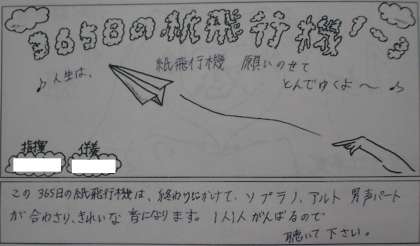 365日の紙飛行機
♪人生は、紙飛行機 願いのせて
とんでゆくよ〜♪
指揮 伴奏
この365日の紙飛行機は、終わりにかけて、ソプラノ、アルト 男声パート
が合わさり、きれいな音になります。1人1人がんばるので
聴いて下さい。